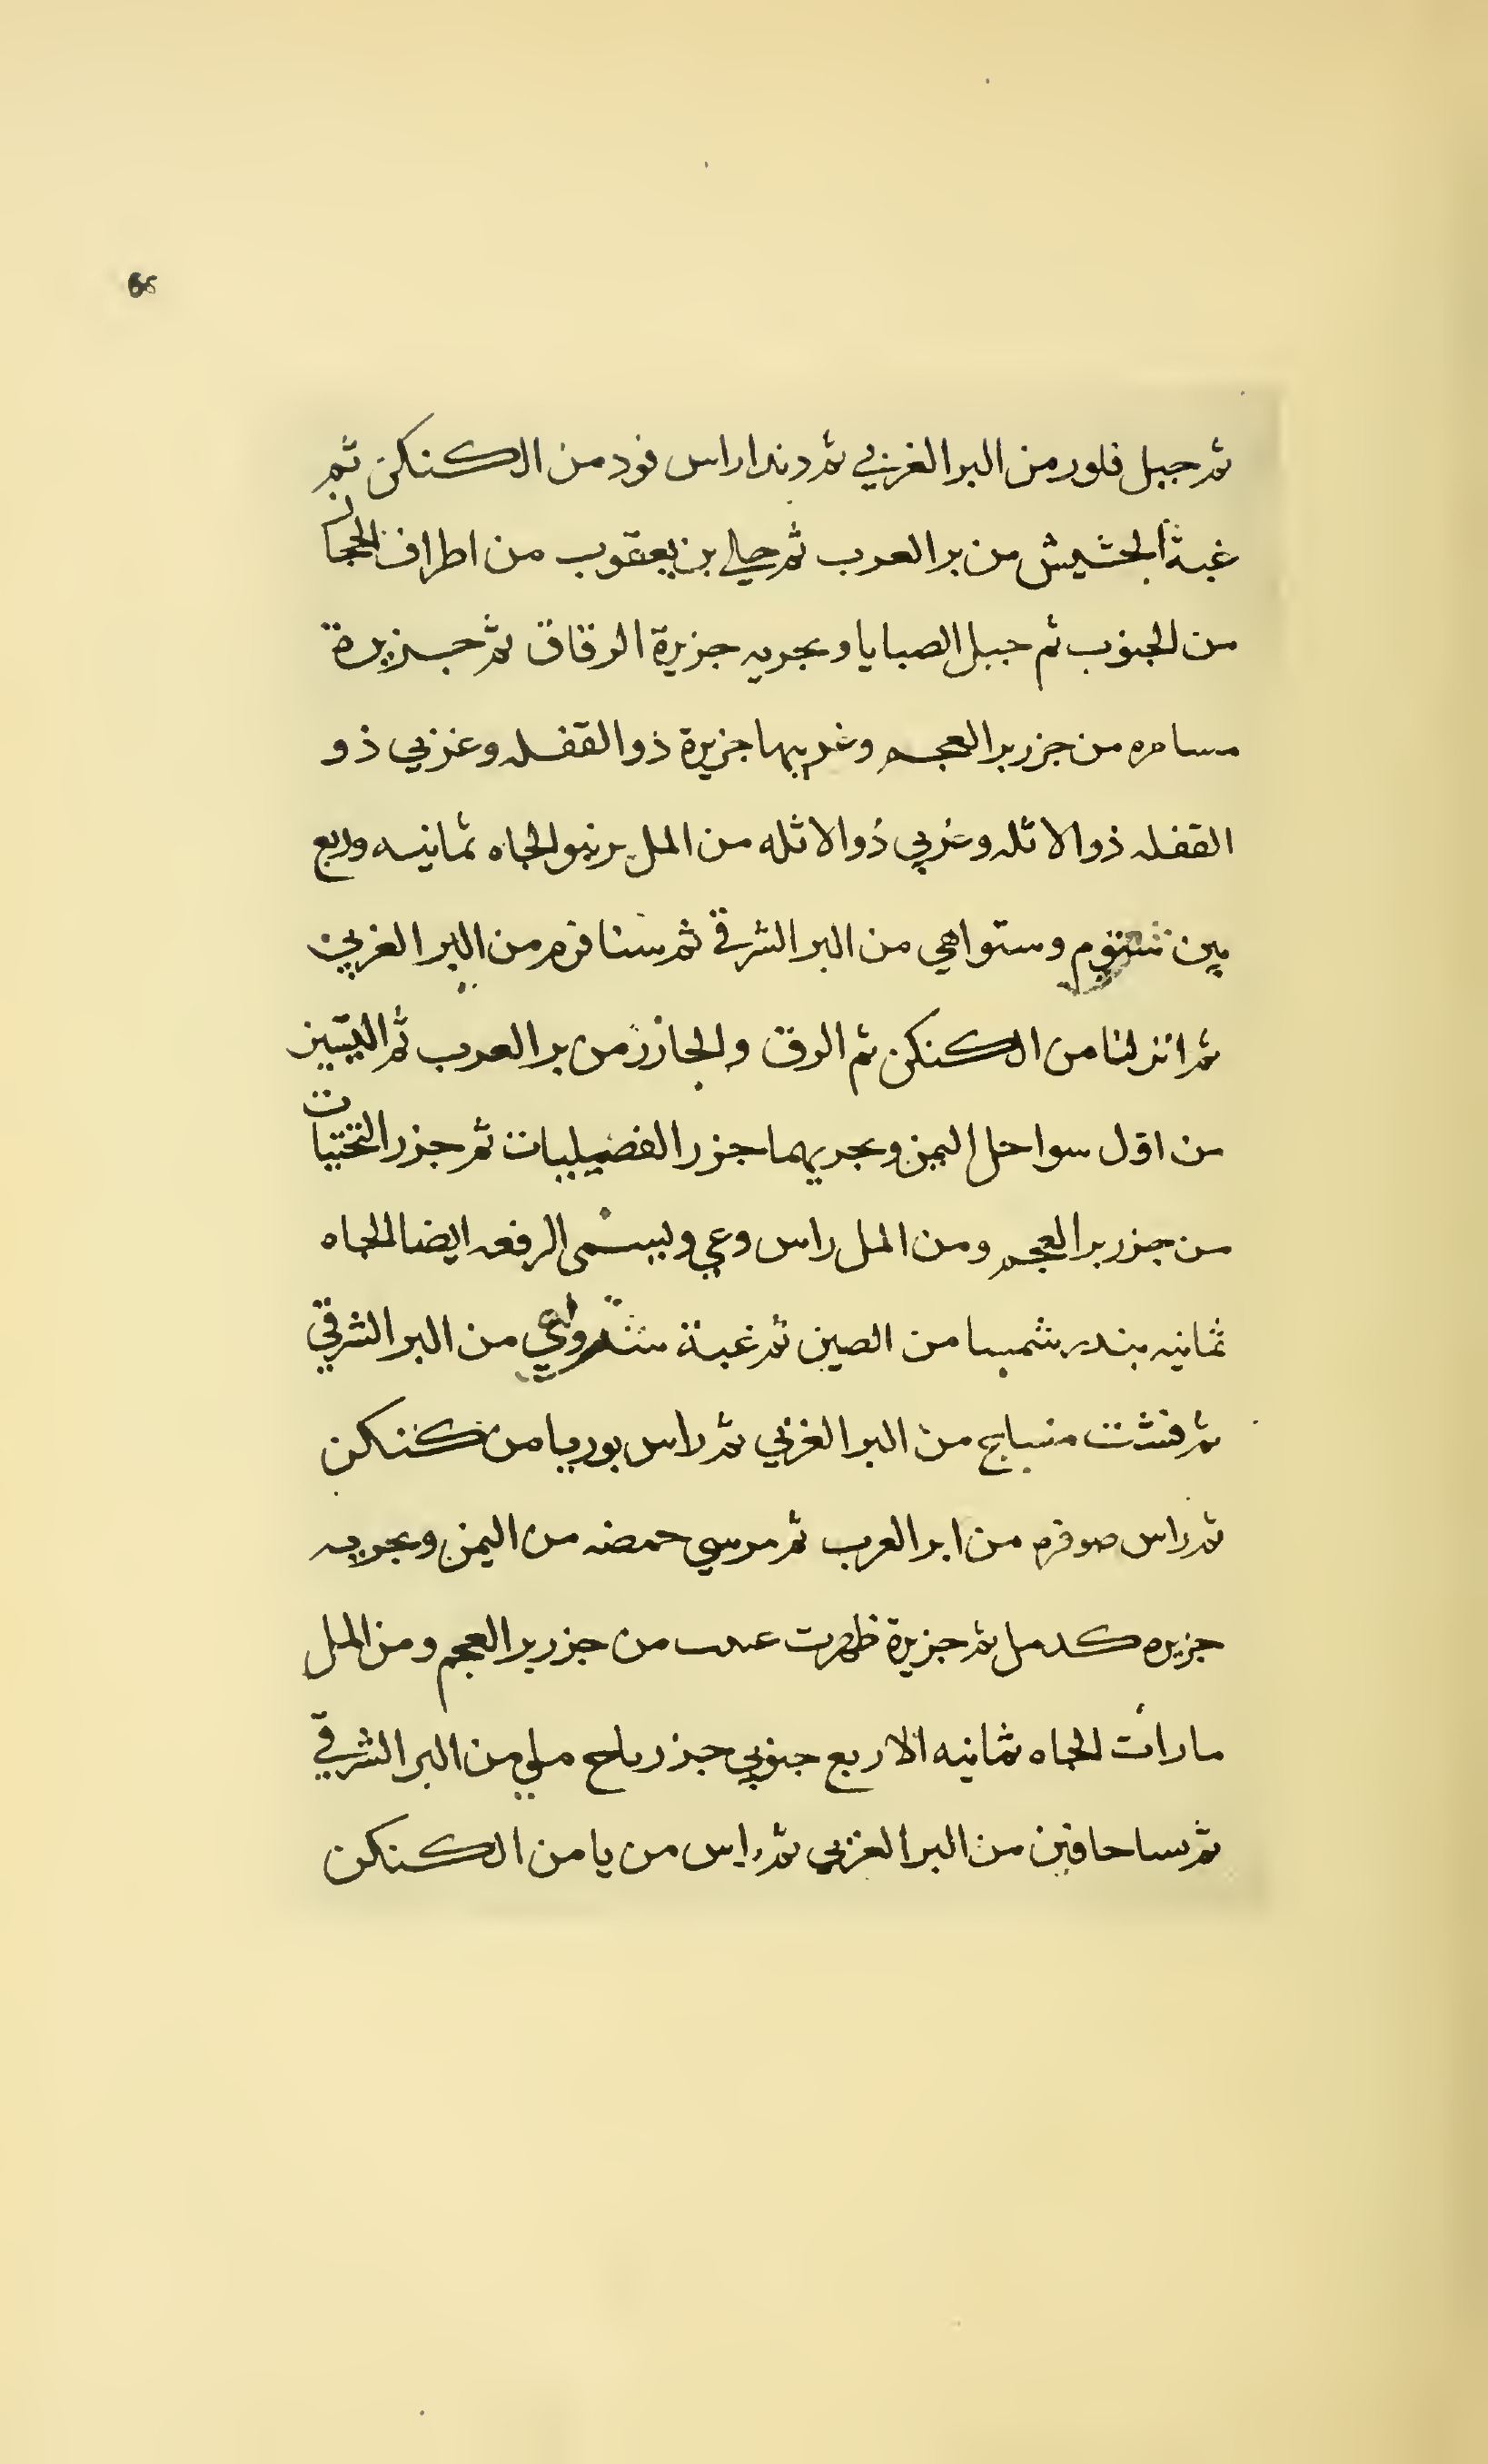 66
ثم جبل فلور من البر الغربي ثم دندا راس فود من الكنكن ثم
غبة الحشيش من بر العرب ثم حلي بن يعقوب من اطراف الحجاز
من الجنوب ثم جبل الصبايا وبحريه جزيرة الرقاق ثم جزيرة
مسامره من جزر بر العجم وغربيها جزيرة ذو القفله وغربي ذو
القفله ذو الاثله وغربي ذو الاثله من المل الجاه ثمانيه وربع
بين وستواهي من البر الشرقي ثم سنافرم من البر الغربي
ثم انزلنا من الكنكن ثم الرق والجازر من بر العرب ثم
من اول سواحل اليمن وبحريهما جزر الفضيليات ثم جزر التختيات
من جزر بر العجم ومن المل راس وعي ويسمى الرفعه ايضا الجاه
ثمانيه بندر شمسا من الصين ثم غبة من البر الشرقي
ثم فشت منباج من البر الغربي ثم راس بوريا من كنكن
ثم راس صوقرم من ابر العرب ثم مرسي حمضه من اليمن وبحريه
جزيره كدمل ثم جزيرة ظهرت من جزر بر العجم ومن المل
مارات الجاه ثمانيه الا ربع جنوبي جزر ملي من البر الشرقي
ثم ساحافين من البر الغربي ثم راس من يا من الكنكن